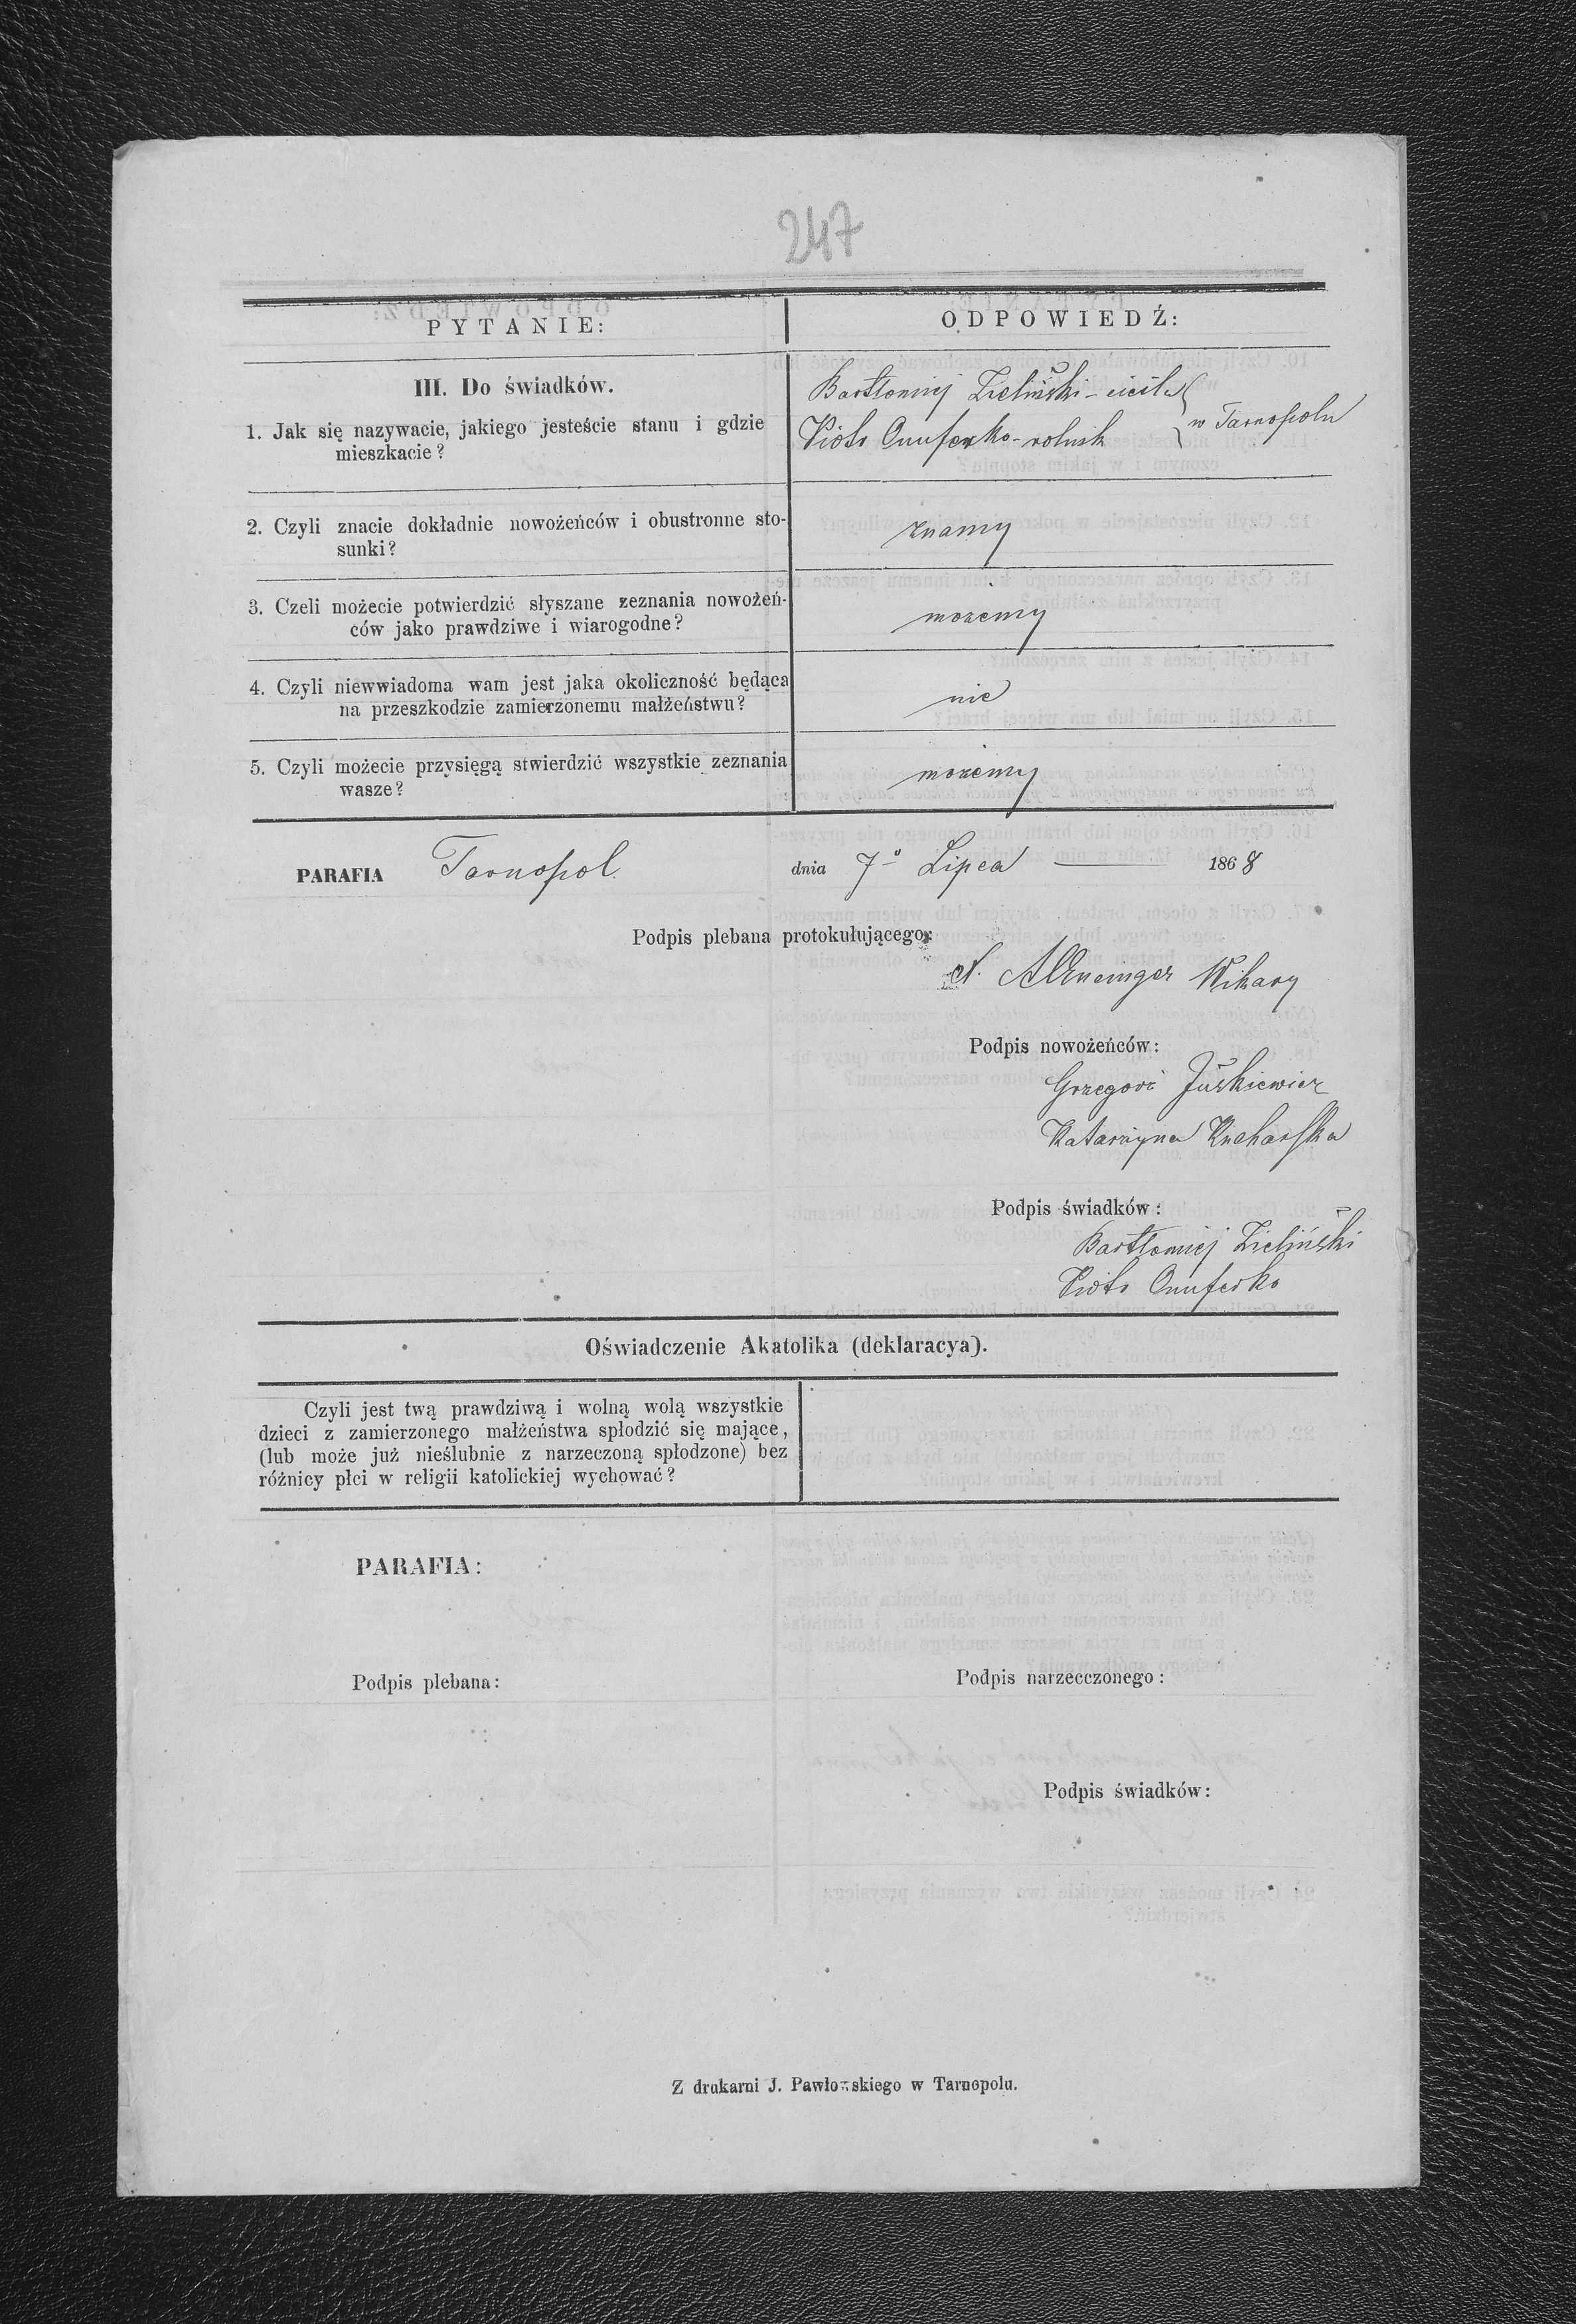 247
PYTANIE:
ODPOWIEDŹ:
III. Do świadków.
1. Jak się nazywacie, jakiego jesteście stanu i gdzie
mieszkacie?
Bartłomiej Zieliński - cieśla
Piotr Onuferko - rolnik
w Tarnopolu
2. Czyli znacie dokładnie nowożeńców i obustronne sto-
sunki?
znamy
3. Czeli możecie potwierdzić słyszane zeznania nowożeń-
ców jako prawdziwe i wiarogodne?
możemy
4. Czyli niewwiadoma wam jest jaka okoliczność będąca
na przeszkodzie zamierzonemu małżeństwu?
nie
5. Czyli możecie przysięgą stwierdzić wszystkie zeznania
wasze?
możemy
PARAFIA Tarnopol. dnia 7º Lipca — 1868
Podpis plebana protokułującego:
Wikary
Podpis nowożeńców:
Grzegorz Juśkiewicz
Katarzyna Kucharska
Podpis świadków:
Bartłomiej Zieliński
Piotr Onuferko
Oświadczenie Akatolika (deklaracya).
Czyli jest twą prawdziwą i wolną wolą wszystkie
dzieci z zamierzonego małżeństwa spłodzić się mające,
(lub może już nieślubnie z narzeczoną spłodzone) bez
różnicy płci w religii katolickiej wychować?
PARAFIA:
Podpis plebana:
Podpis narzecczonego:
Podpis świadków:
Z drukarni J. Pawłowskiego w Tarnopolu.